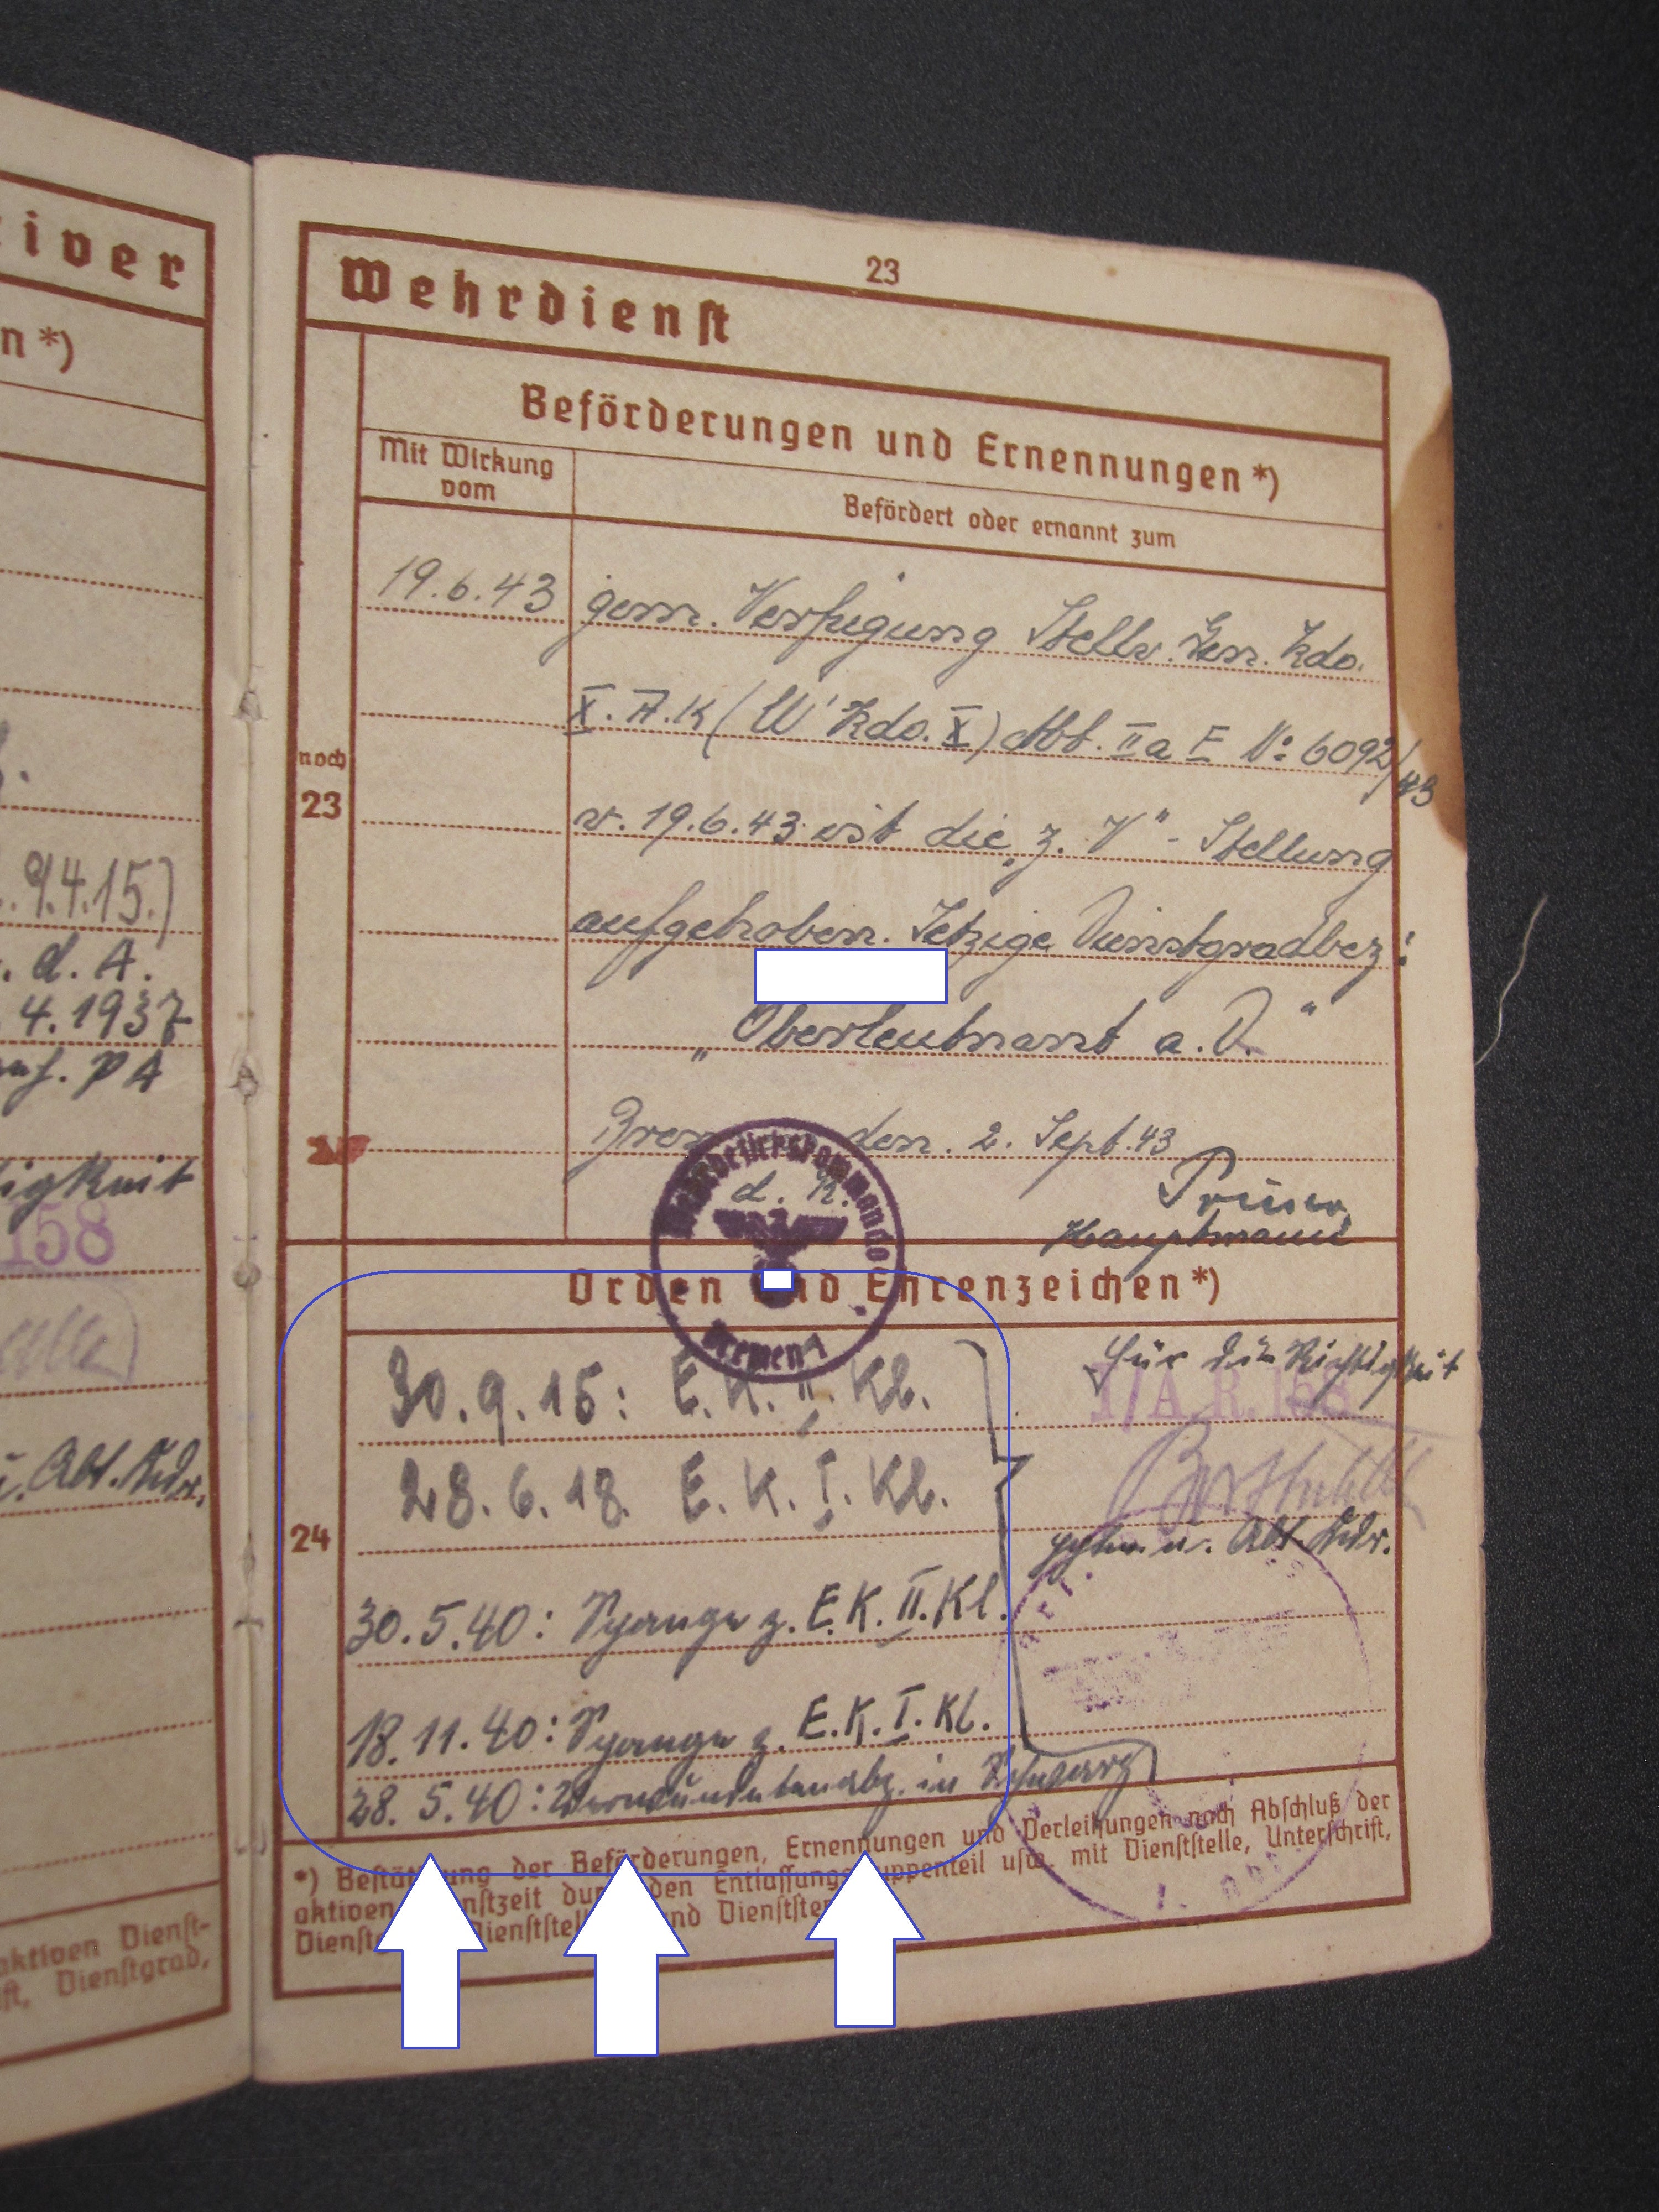 tiver
n*)
9.4.15.)
. d. A.
4.1937
PA
igkeit
158
Abt. Kdr.
aktiven Dienst-
ft, Dienstgrad,
23
Wehrdienst
Beförderungen und Ernennungen*)
Mit Wirkung vom
Befördert oder ernannt zum
19.6.43 gem. Verfügung Stellv. Gen. Kdo.
X. A.K (W'Kdo. X) Abt. IIa F No 6092/43
noch
23
v. 19.6.43 ist die „z. V" - Stellung
aufgehoben. Jetzige Dienstgradbez:
„Oberleutnant a. D."
den. 2. Sept. 43
Wehrbezirkskommando
d. R.
Hauptmann
Bremen I
Orden und Ehrenzeichen*)
24
30.9.15: E.K. II. Kl.
28.6.18. E. K. I. Kl.
30.5.40: Spange z. E.K. II. Kl.
18.11.40: Spange z. E.K. I. Kl.
28. 5.40: Verwundetenabz. in Schwarz
für die Richtigkeit
I/A. R. 158
u. Abt. Kdr.
*) Bestätigung der Beförderungen, Ernennungen und Verleihungen nach Abschluß der
aktiven Dienstzeit durch den Entlassungstruppenteil usw. mit Dienststelle, Unterschrift,